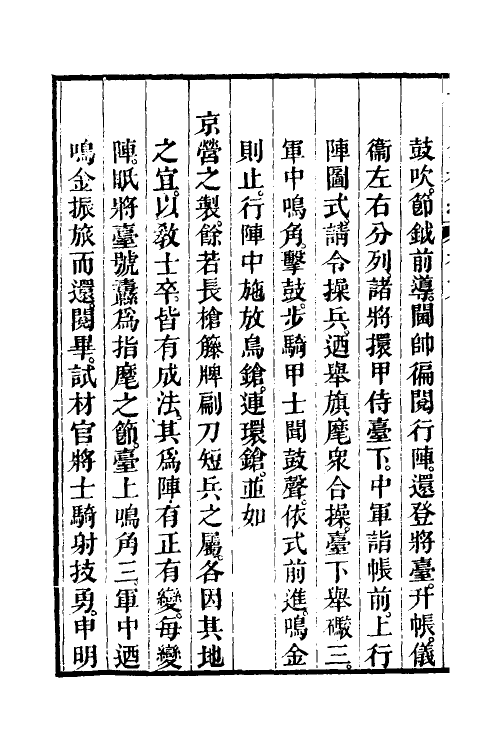 鼓吹。節鉞前導。閫帥徧閱行陣。還登將臺。升帳。儀
衞左右分列。諸將擐甲侍臺下。中軍詣帳前。上行
陣圖式。請令操兵。迺舉旗麾衆合操。臺下舉礮三。
軍中鳴角。擊鼓。步騎甲士聞鼓聲。依式前進。鳴金
則止。行陣中施放鳥鎗。連環鎗。並如
京營之製。餘若長槍籐牌刷刀短兵之屬。各因其地
之宜。以敎士卒。皆有成法。其爲陣有正有變。每變
陣。眂將臺號纛爲指麾之節。臺上鳴角三。軍中迺
鳴金振旅而還。閱畢。試材官將士騎射技勇。申明